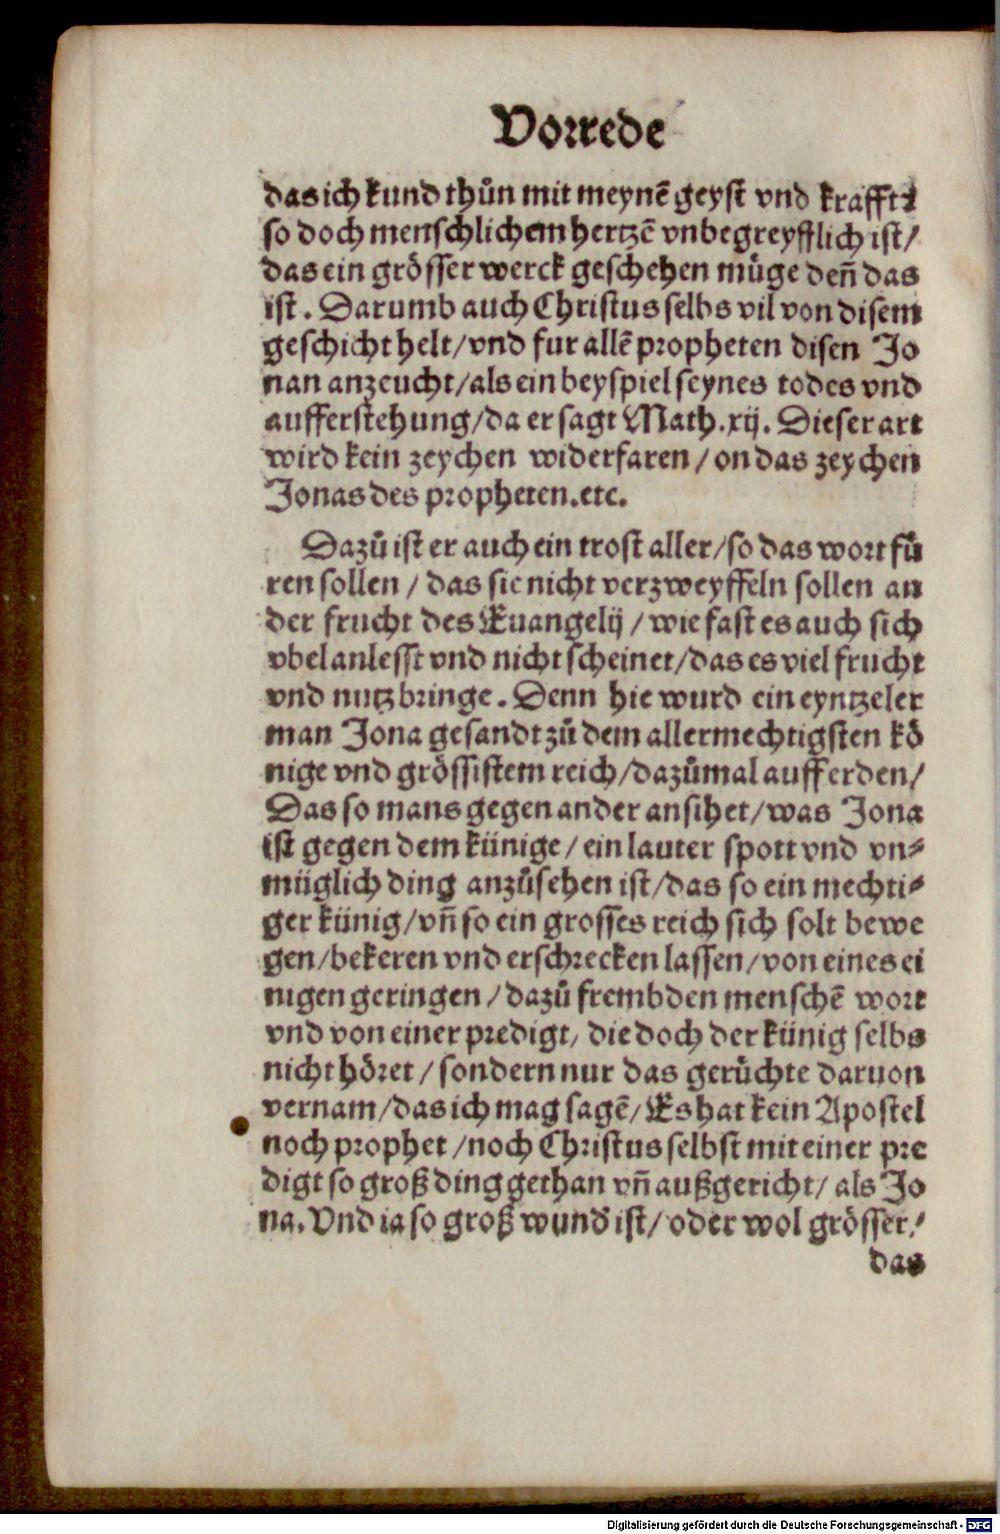 Vorrede
das ich kund thůn mit meynē geyst vnd krafft⁊
so doch menschlichem hertzē vnbegreyfflich ist/
das ein grösser werck geschehen müge deñ das
ist. Darumb auch Christus selbs vil von disem
geschicht helt/vnd fur allē propheten disen Jo
nan anzeucht/als ein beyspiel seynes todes vnd
aufferstehung/da er sagt Math.xij. Dieser art
wird kein zeychen widerfaren/on das zeychen
Jonas des propheten.etc.
Dazů ist er auch ein trost aller/so das wort fů
ren sollen/das sie nicht verzweyffeln sollen an
der frucht des Euangelij/wie fast es auch sich
vbel anlesst vnd nicht scheinet/das es viel frucht
vnd nutz bringe. Denn hie wurd ein eyntzeler
man Jona gesandt zů dem allermechtigsten kö
nige vnd grössistem reich/dazůmal auff erden/
Das so mans gegen ander ansihet/was Jona
ist gegen dem künige/ein lauter spott vnd vn⸗
müglich ding anzůsehen ist/das so ein mechti⸗
ger künig/vñ so ein grosses reich sich solt bewe
gen/bekeren vnd erschrecken lassen/von eines ei
nigen geringen/dazů frembden menschē wort
vnd von einer predigt/die doch der künig selbs
nicht höret/sondern nur das gerůchte daruon
vernam/das ich mag sagē/Es hat kein Apostel
noch prophet/noch Christus selbst mit einer pre
digt so groß ding gethan vñ außgericht/als Jo
na. Vnd ia so groß wund̄ ist/oder wol grösser/
das
Digitalisierung gefördert durch die Deutsche Forschungsgemeinschaft - DFG